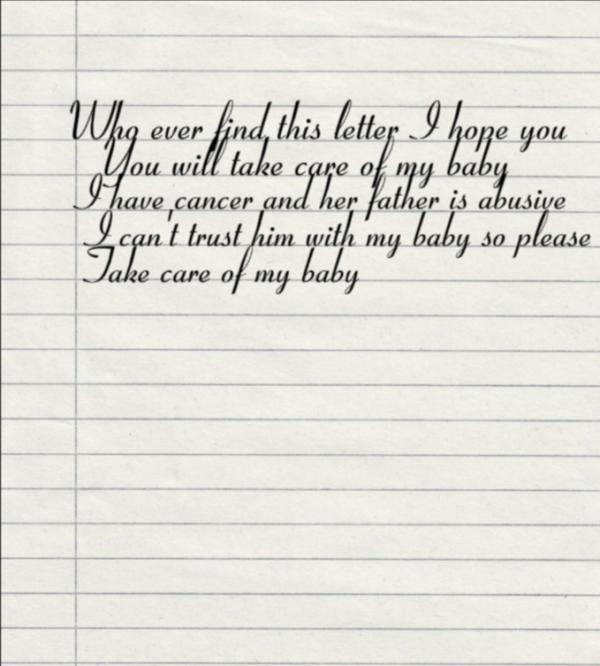 Who ever find this letter I hope you
You will take care of my baby
I have cancer and her father is abusive
I can't trust him with my baby so please
Take care of my baby